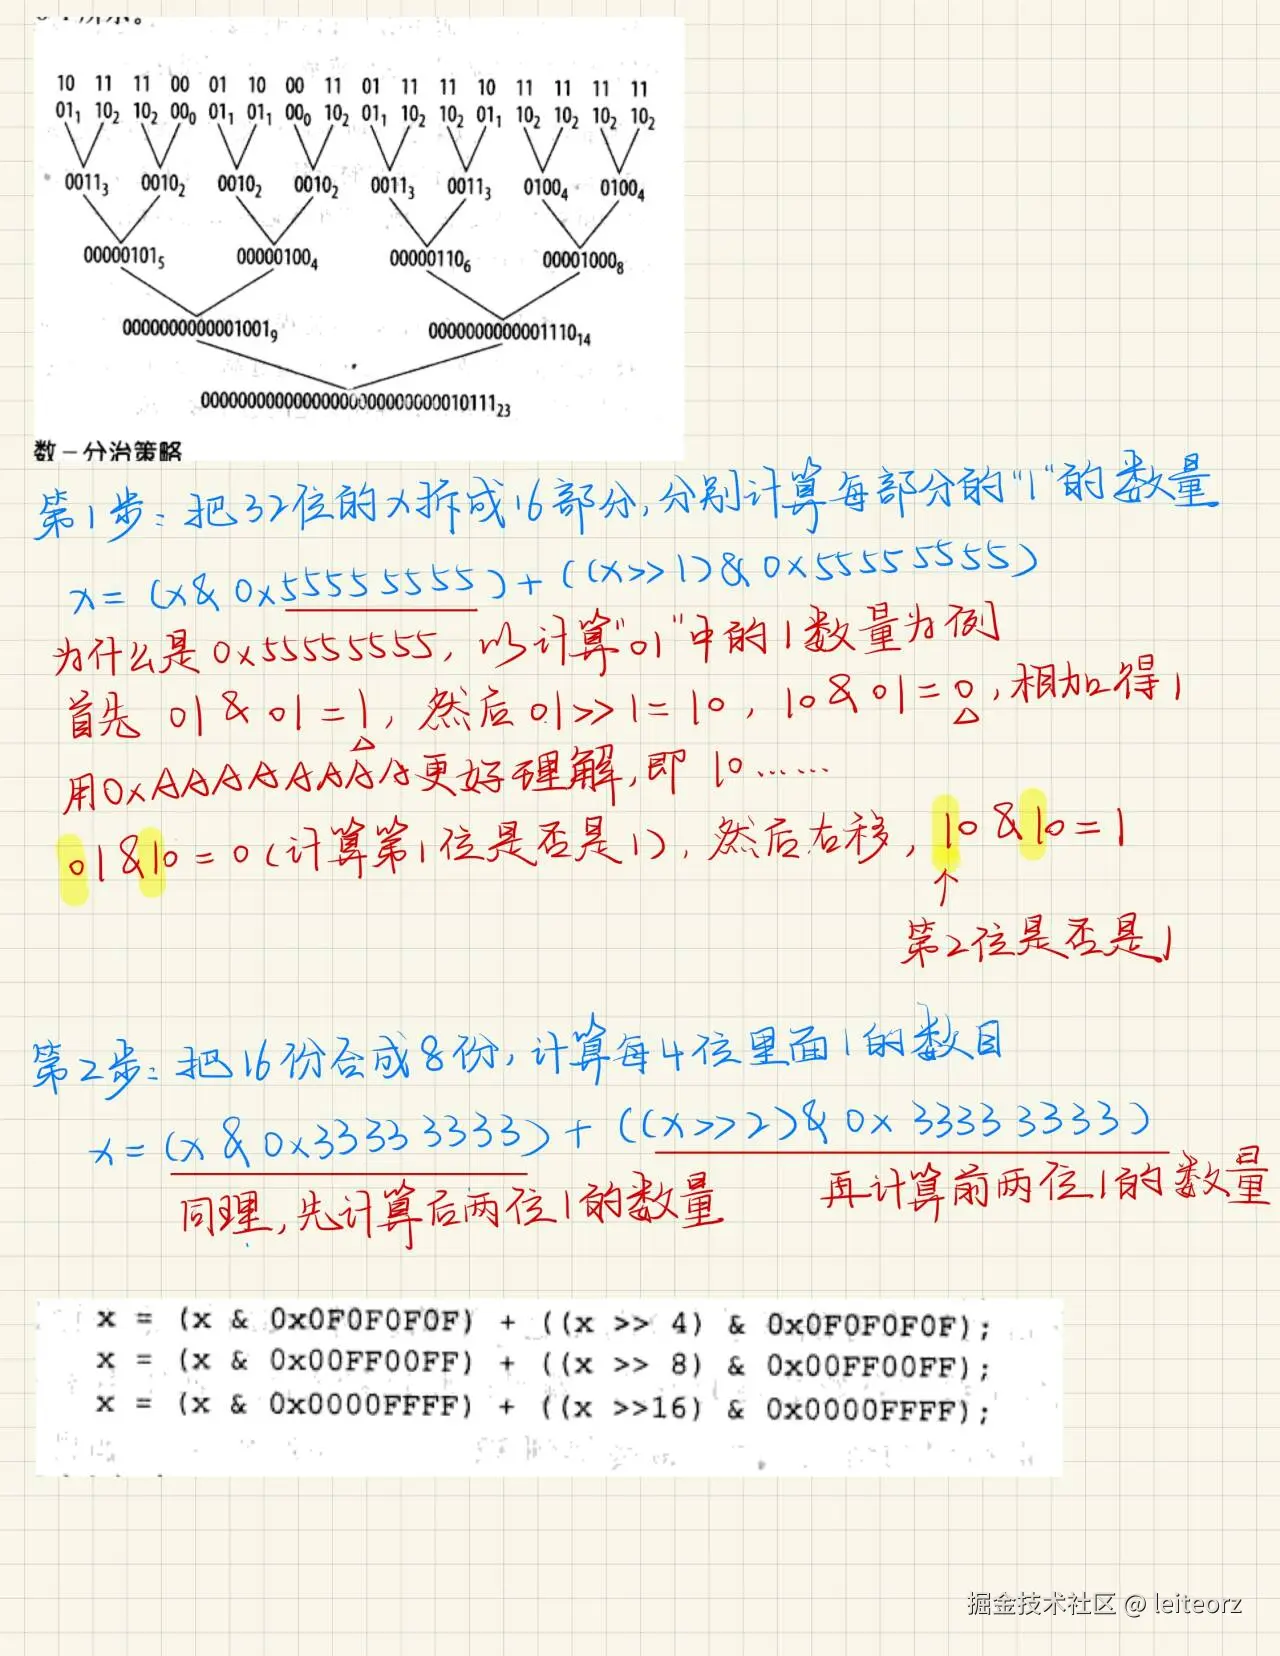 10 11 11 00 01 10 00 11 01 11 11 10 11 11 11 11
01₁ 10₂ 10₂ 00₀ 01₁ 01₁ 00₀ 10₂ 01₁ 10₂ 10₂ 01₁ 10₂ 10₂ 10₂ 10₂
0011₃ 0010₂ 0010₂ 0010₂ 0011₃ 0011₃ 0100₄ 0100₄
00000101₅ 00000100₄ 00000110₆ 00001000₈
0000000000001001₉ 0000000000001110₁₄
00000000000000000000000000010111₂₃
数-分治策略
第1步:把32位的x拆成16部分,分别计算每部分的"1"的数量
x=(x&0x55555555)+((x>>1)&0x55555555)
为什么是0x55555555,以计算"01"中的1数量为例
首先 01&01=1,然后01>>1=10,10&01=0,相加得1
用0xAAAAAAAA更好理解,即 10……
01&10=0(计算第1位是否是1),然后右移,10&10=1
↑
第2位是否是1
第2步:把16份合成8份,计算每4位里面1的数目
x=(x&0x33333333)+((x>>2)&0x33333333)
同理,先计算后两位1的数量 再计算前两位1的数量
x = (x & 0x0F0F0F0F) + ((x >> 4) & 0x0F0F0F0F);
x = (x & 0x00FF00FF) + ((x >> 8) & 0x00FF00FF);
x = (x & 0x0000FFFF) + ((x >>16) & 0x0000FFFF);
掘金技术社区 @ leiteorz